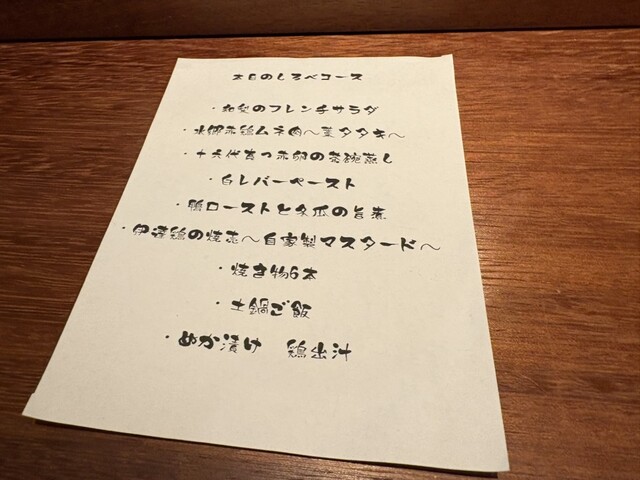 本日のしろべコース
・和梨のフレンチサラダ
・水郷赤鶏ムネ肉〜藁タタキ〜
・十六代真っ赤卵の茶碗蒸し
・白レバーペースト
・鴨ローストと冬瓜の旨煮
・伊達鶏の焼売〜自家製マスタード〜
・焼き物6本
・土鍋ご飯
・ぬか漬け 鶏出汁